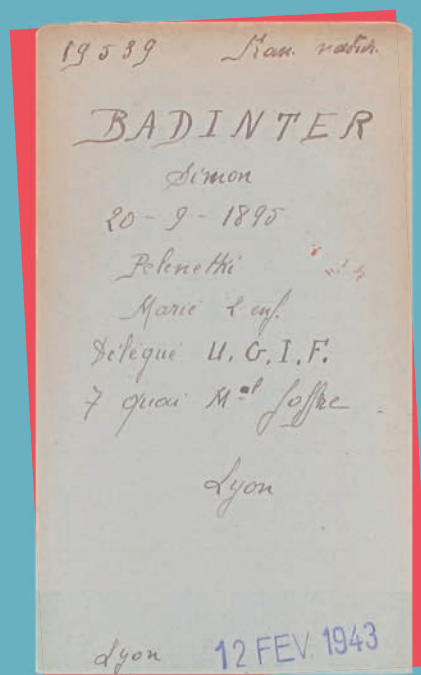 19539 Fran. natur.
BADINTER
Simon
20-9-1895
Pelenetki
Marié 2 enf.
Délégué U.G.I.F.
7 quai Mal Joffre
Lyon
Lyon 12 FEV. 1943